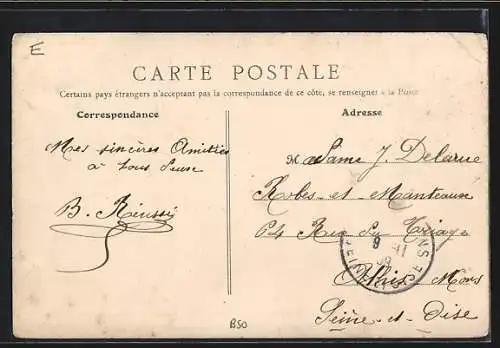 E
CARTE POSTALE
Certains pays étrangers n'acceptant pas la correspondance de ce côté, se renseigner à la Poste
Correspondance
Adresse
Mes sincères Amitiés
à tous
B.
Madame J. Delarue
Robes - et - Manteaux
Rue du Triage
Athis - Mons
Seine - et - Oise
9
B50